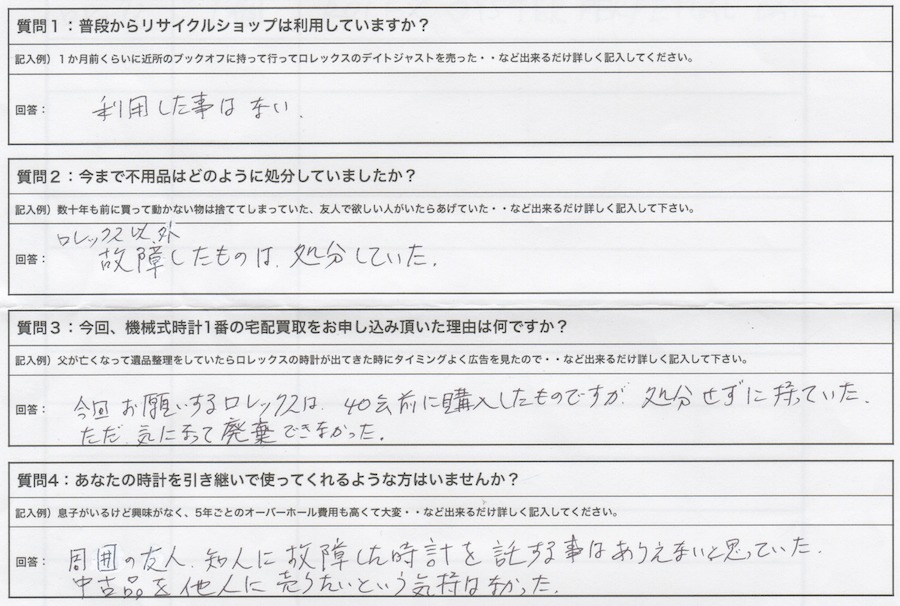 質問1:普段からリサイクルショップは利用していますか?
記入例)1か月前くらいに近所のブックオフに持って行ってロレックスのデイトジャストを売った・・など出来るだけ詳しく記入してください。
回答: 利用した事はない.
質問2:今まで不用品はどのように処分していましたか?
記入例)数十年も前に買って動かない物は捨ててしまっていた、友人で欲しい人がいたらあげていた・・など出来るだけ詳しく記入して下さい。
ロレックス以外
回答: 故障したものは、処分していた.
質問3:今回、機械式時計1番の宅配買取をお申し込み頂いた理由は何ですか?
記入例)父が亡くなって遺品整理をしていたらロレックスの時計が出てきた時にタイミングよく広告を見たので・・など出来るだけ詳しく記入して下さい。
回答: 今回お願いするロレックスは、40年前に購入したものですが、処分せずに持っていた.
ただ、気になって廃棄できなかった.
質問4:あなたの時計を引き継いで使ってくれるような方はいませんか?
記入例)息子がいるけど興味がなく、5年ごとのオーバーホール費用も高くて大変・・など出来るだけ詳しく記入してください。
回答: 周囲の友人、知人に故障した時計を託する事はありえないと思っていた.
中古品を他人に売りたいという気持はなかった.